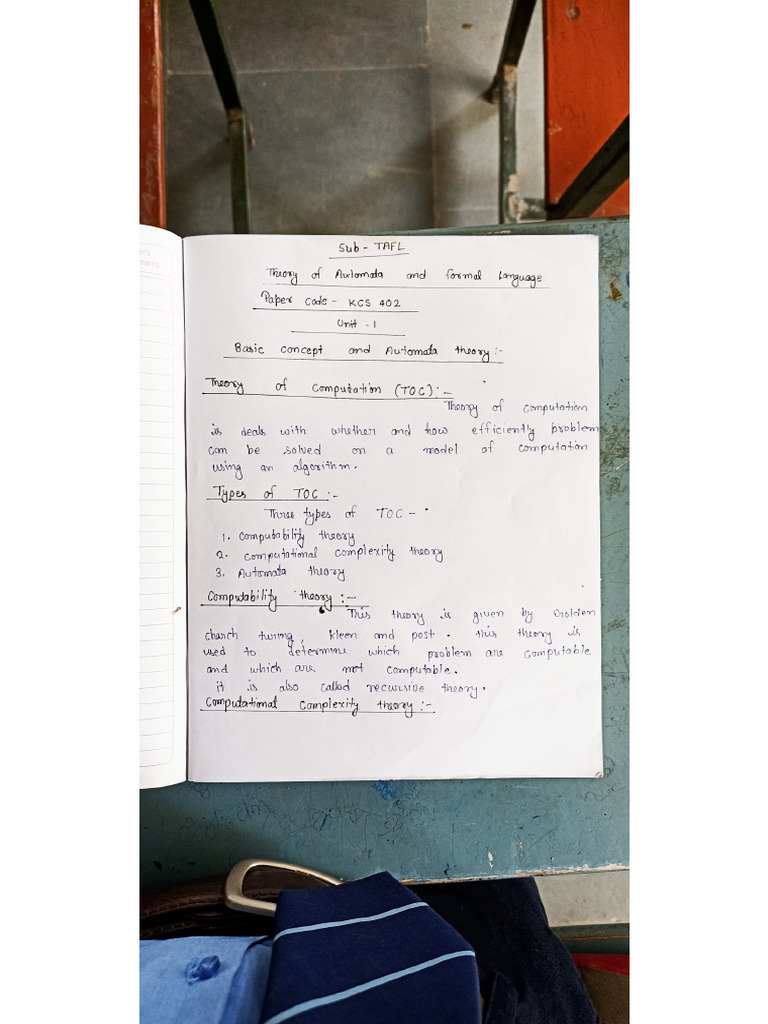 Sub - TAFL
Theory of Automata and formal Language
Paper Code - KCS 402
Unit - 1
Basic concept and Automata theory :-
Theory of Computation (TOC) :-
Theory of computation
is deals with whether and how efficiently problem
can be solved on a model of computation
using an algorithm.
Types of TOC :-
Three types of TOC -
1. Computability theory
2. Computational Complexity theory
3. Automata theory
Computability theory :-
This theory is given by Golden
church turing, kleen and post. this theory is
used to determine which problem are computable
and which are not computable.
it is also called recursive theory.
Computational Complexity theory :-